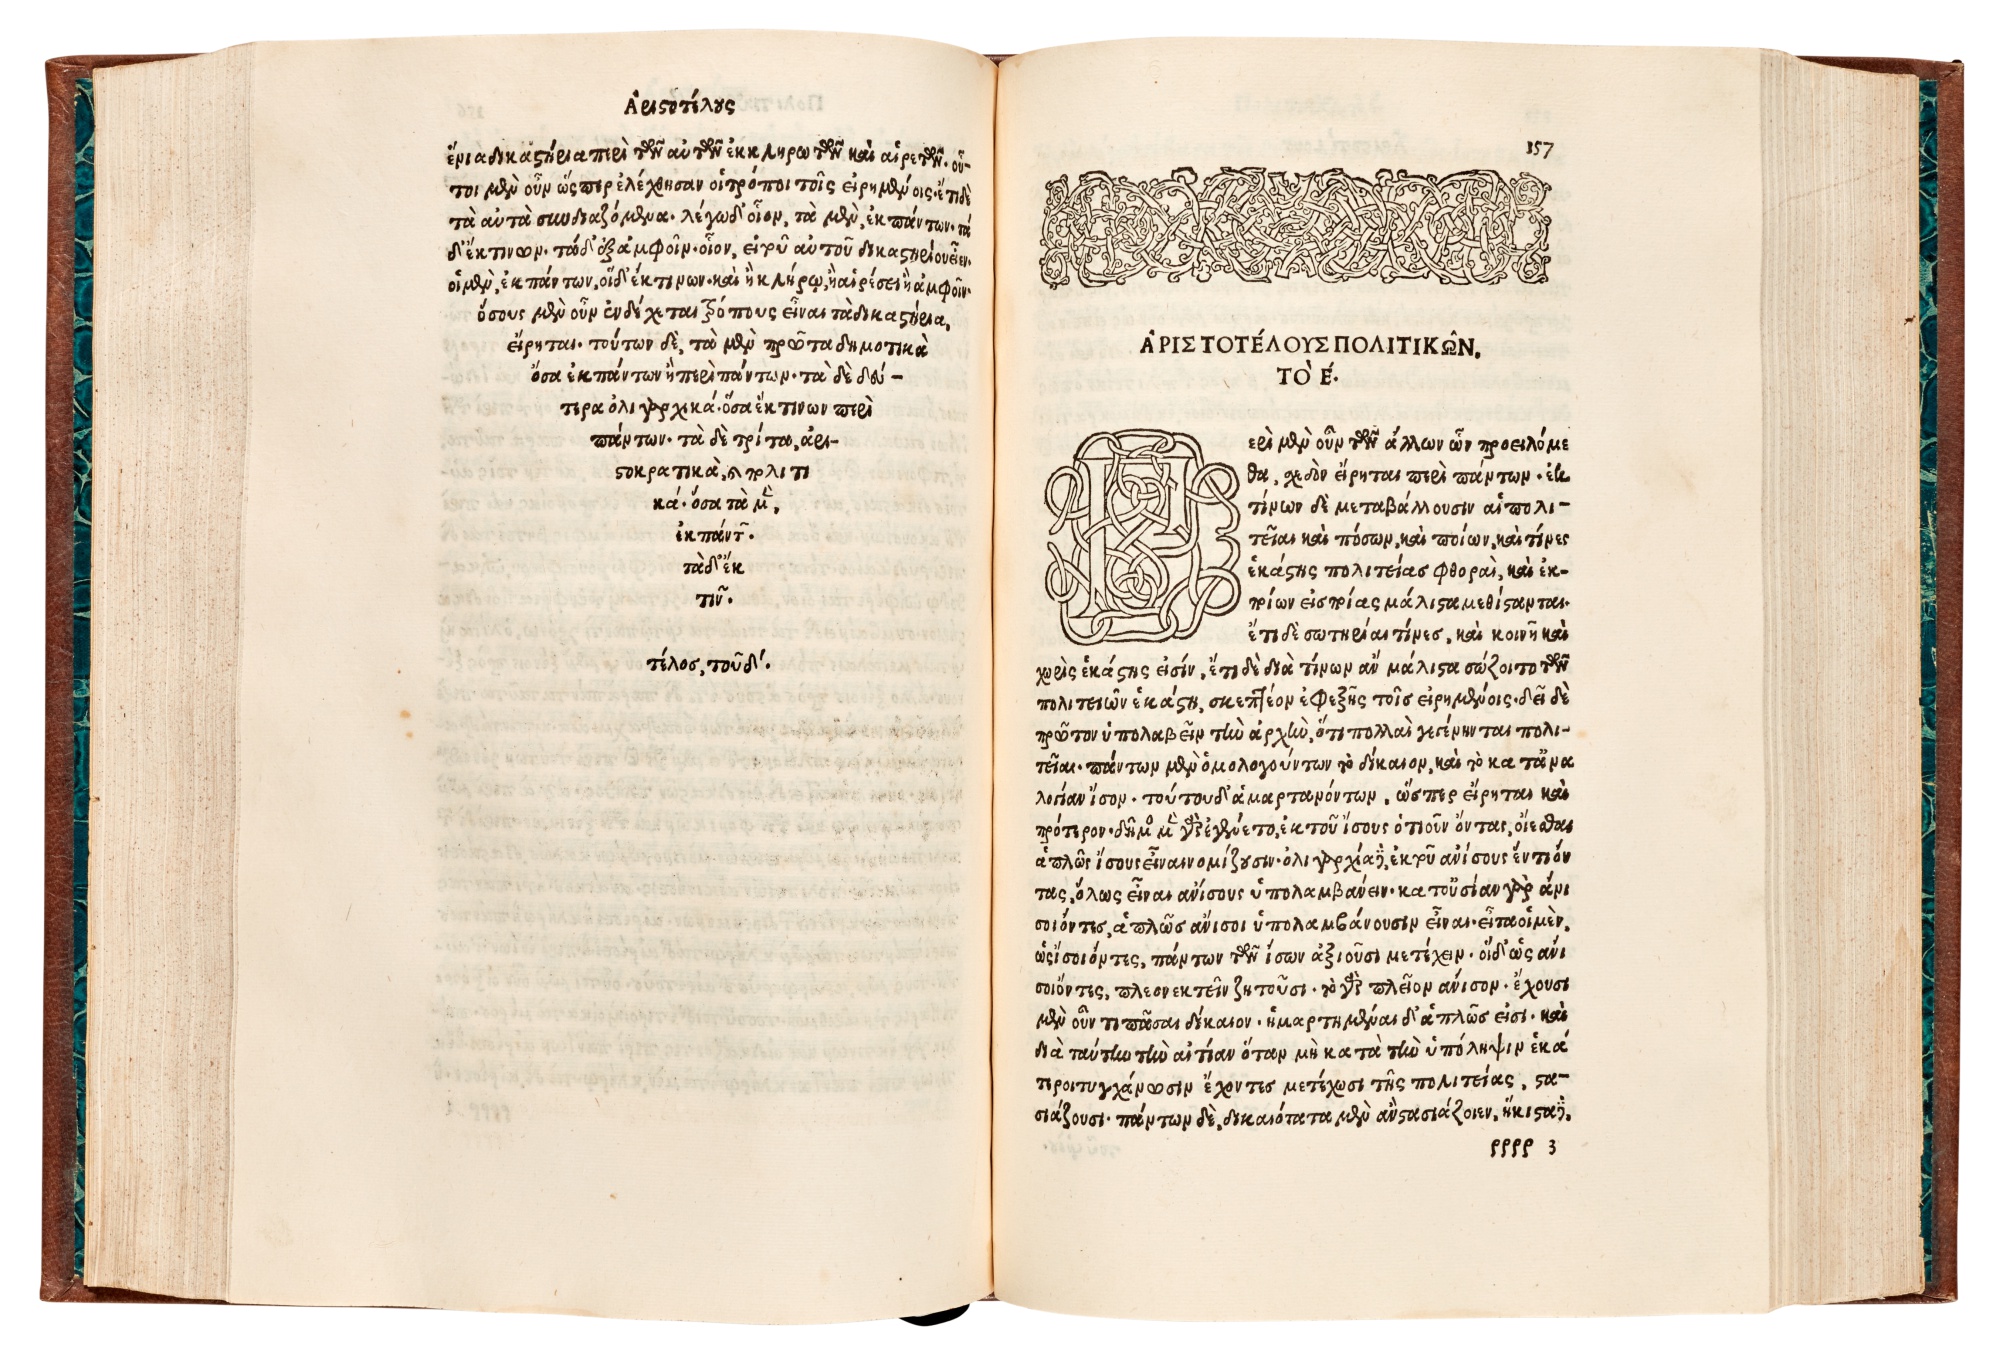 Ἀριστοτέλους
ἔνια δικαστήρια περὶ τῶν αὐτῶν ἐκ κληρωτῶν καὶ αἱρετῶν. οὗ-
τοι μὲν οὖν ὥσπερ ἐλέχθησαν οἱ τρόποι τοῖς εἰρημένοις. ἔτι δὲ
τὰ αὐτὰ συνδιαζόμενα. λέγω δ' οἷον, τὰ μὲν, ἐκ πάντων. τὰ
δ' ἔκ τινων. τὰ δ' ἐξ ἀμφοῖν. οἷον, εἰ τοῦ αὐτοῦ δικαστηρίου εἶεν.
οἱ μὲν, ἐκ πάντων, οἱ δ' ἔκ τινων. καὶ ἢ κλήρῳ, ἢ αἱρέσει ἢ ἀμφοῖν.
ὅσους μὲν οὖν ἐνδέχεται τρόπους εἶναι τὰ δικαστήρια,
εἴρηται. τούτων δὲ, τὰ μὲν πρῶτα δημοτικὰ
ὅσα ἐκ πάντων ἢ περὶ πάντων. τὰ δὲ δεύ-
τερα ὀλιγαρχικά. ὅσα ἔκ τινων περὶ
πάντων. τὰ δὲ τρίτα, ἀρι-
στοκρατικὰ, καὶ πολιτι
κά. ὅσα τὰ μὲν,
ἐκ πάντων.
τὰ δ' ἔκ
τινων.
τέλος, τοῦ δ'.
157
ἈΡΙΣΤΟΤΈΛΟΥΣ ΠΟΛΙΤΙΚΩ͂Ν,
ΤῸ Ε΄.
Περὶ μὲν οὖν τῶν ἄλλων ὧν προειλόμε
θα, σχεδὸν εἴρηται περὶ πάντων. ἐκ
τίνων δὲ μεταβάλλουσιν αἱ πολι-
τεῖαι καὶ πόσων, καὶ ποίων, καὶ τίνες
ἑκάστης πολιτείας φθοραὶ, καὶ ἐκ-
ποίων εἰς ποίας μάλιστα μεθίστανται.
ἔτι δὲ σωτηρίαι τίνες, καὶ κοινῆ καὶ
χωρὶς ἑκάστης εἰσίν, ἔτι δὲ διὰ τίνων ἂν μάλιστα σώζοιτο τῶν
πολιτειῶν ἑκάστη, σκεπτέον ἐφεξῆς τοῖς εἰρημένοις. δεῖ δὲ
πρῶτον ὑπολαβεῖν τὴν ἀρχὴν, ὅτι πολλαὶ γεγένηνται πολι-
τεῖαι. πάντων μὲν ὁμολογούντων τὸ δίκαιον, καὶ τὸ κατ' ἀνα
λογίαν ἴσον. τούτου δ' ἁμαρτανόντων, ὥσπερ εἴρηται καὶ
πρότερον. δῆμος μὲν γὰρ ἐγένετο, ἐκ τοῦ ἴσους ὁτιοῦν ὄντας, οἴεσθαι
ἁπλῶς ἴσους εἶναι νομίζουσιν. ὀλιγαρχία δὲ, ἐκ τοῦ ἀνίσους ἕν τι ὄν
τας, ὅλως εἶναι ἀνίσους ὑπολαμβάνειν. κατ' οὐσίαν γὰρ ἄνι
σοι ὄντες, ἁπλῶς ἄνισοι ὑπολαμβάνουσιν εἶναι. εἶτα οἱ μὲν,
ὡς ἴσοι ὄντες, πάντων τῶν ἴσων ἀξιοῦσι μετέχειν. οἱ δ' ὡς ἄνι
σοι ὄντες, πλεονεκτεῖν ζητοῦσι. τὸ γὰρ πλεῖον ἄνισον. ἔχουσι
μὲν οὖν τι πᾶσαι δίκαιον. ἡμαρτημέναι δ' ἁπλῶς εἰσι. καὶ
διὰ ταύτην τὴν αἰτίαν ὅταν μὴ κατὰ τὴν ὑπόληψιν ἑκά
τεροι τυγχάνωσιν ἔχοντες μετέχωσι τῆς πολιτείας, στα-
σιάζουσι. πάντων δὲ, δικαιότατα μὲν ἂν στασιάζοιεν, ἥκιστα δὲ,
ϛϛϛϛ 3